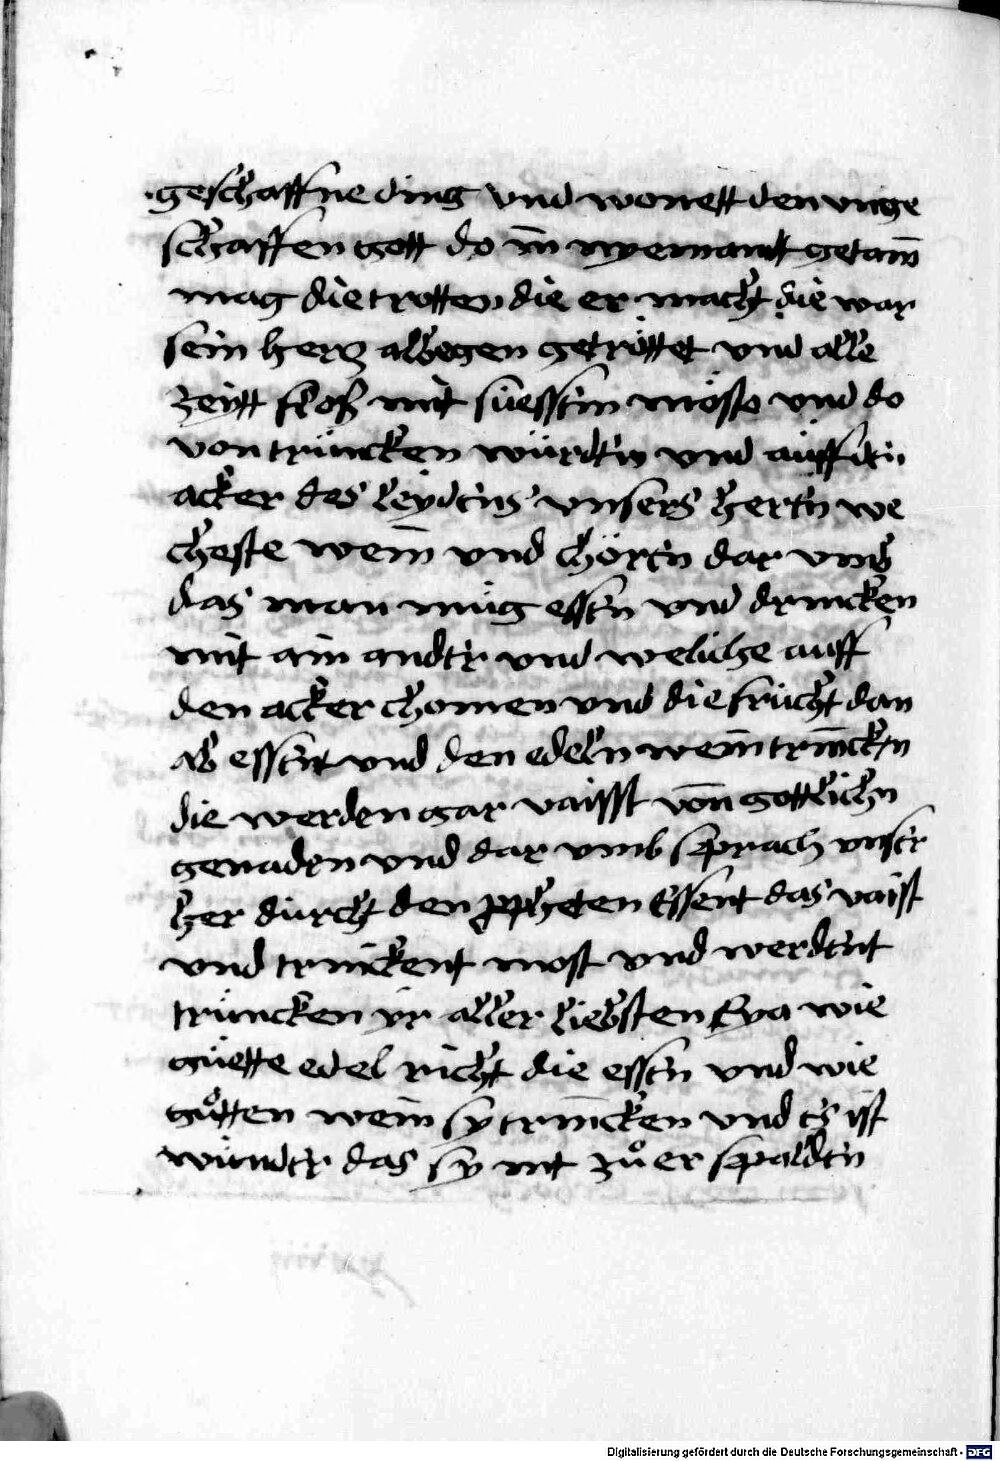 geschaffne ding vnd wonett den vnge
schaffen gott do in nyemant getain
mag die trotten die er macht die war
sein hercz albegen getröttet vnd alle
zeytt floß mit süesstm möste vnd do
von trüncken würdtn vnd auff dem
acker des leydens vnsers hertn we
cheste wein vnd chörtn dar vmb
das man müg essen vnd drincken
mit ain andtr vnd weliche auff
den acker chomen vnd die frücht dan
ab essent vnd den edeln wein trincktn
die werden gar vaisst von gottlichn
genaden vnd dar vmb sprach vnser
her durch den ppheten Essent das vaist
vnd trinckent most vnd werdent
trüncken yr aller liebsten Eya wie
güette edel richt die essen vnd wie
gůtten wein sy trincken vnd es ist
wundtr das sy nit zůer spaldtn
Digitalisierung gefördert durch die Deutsche Forschungsgemeinschaft - DFG